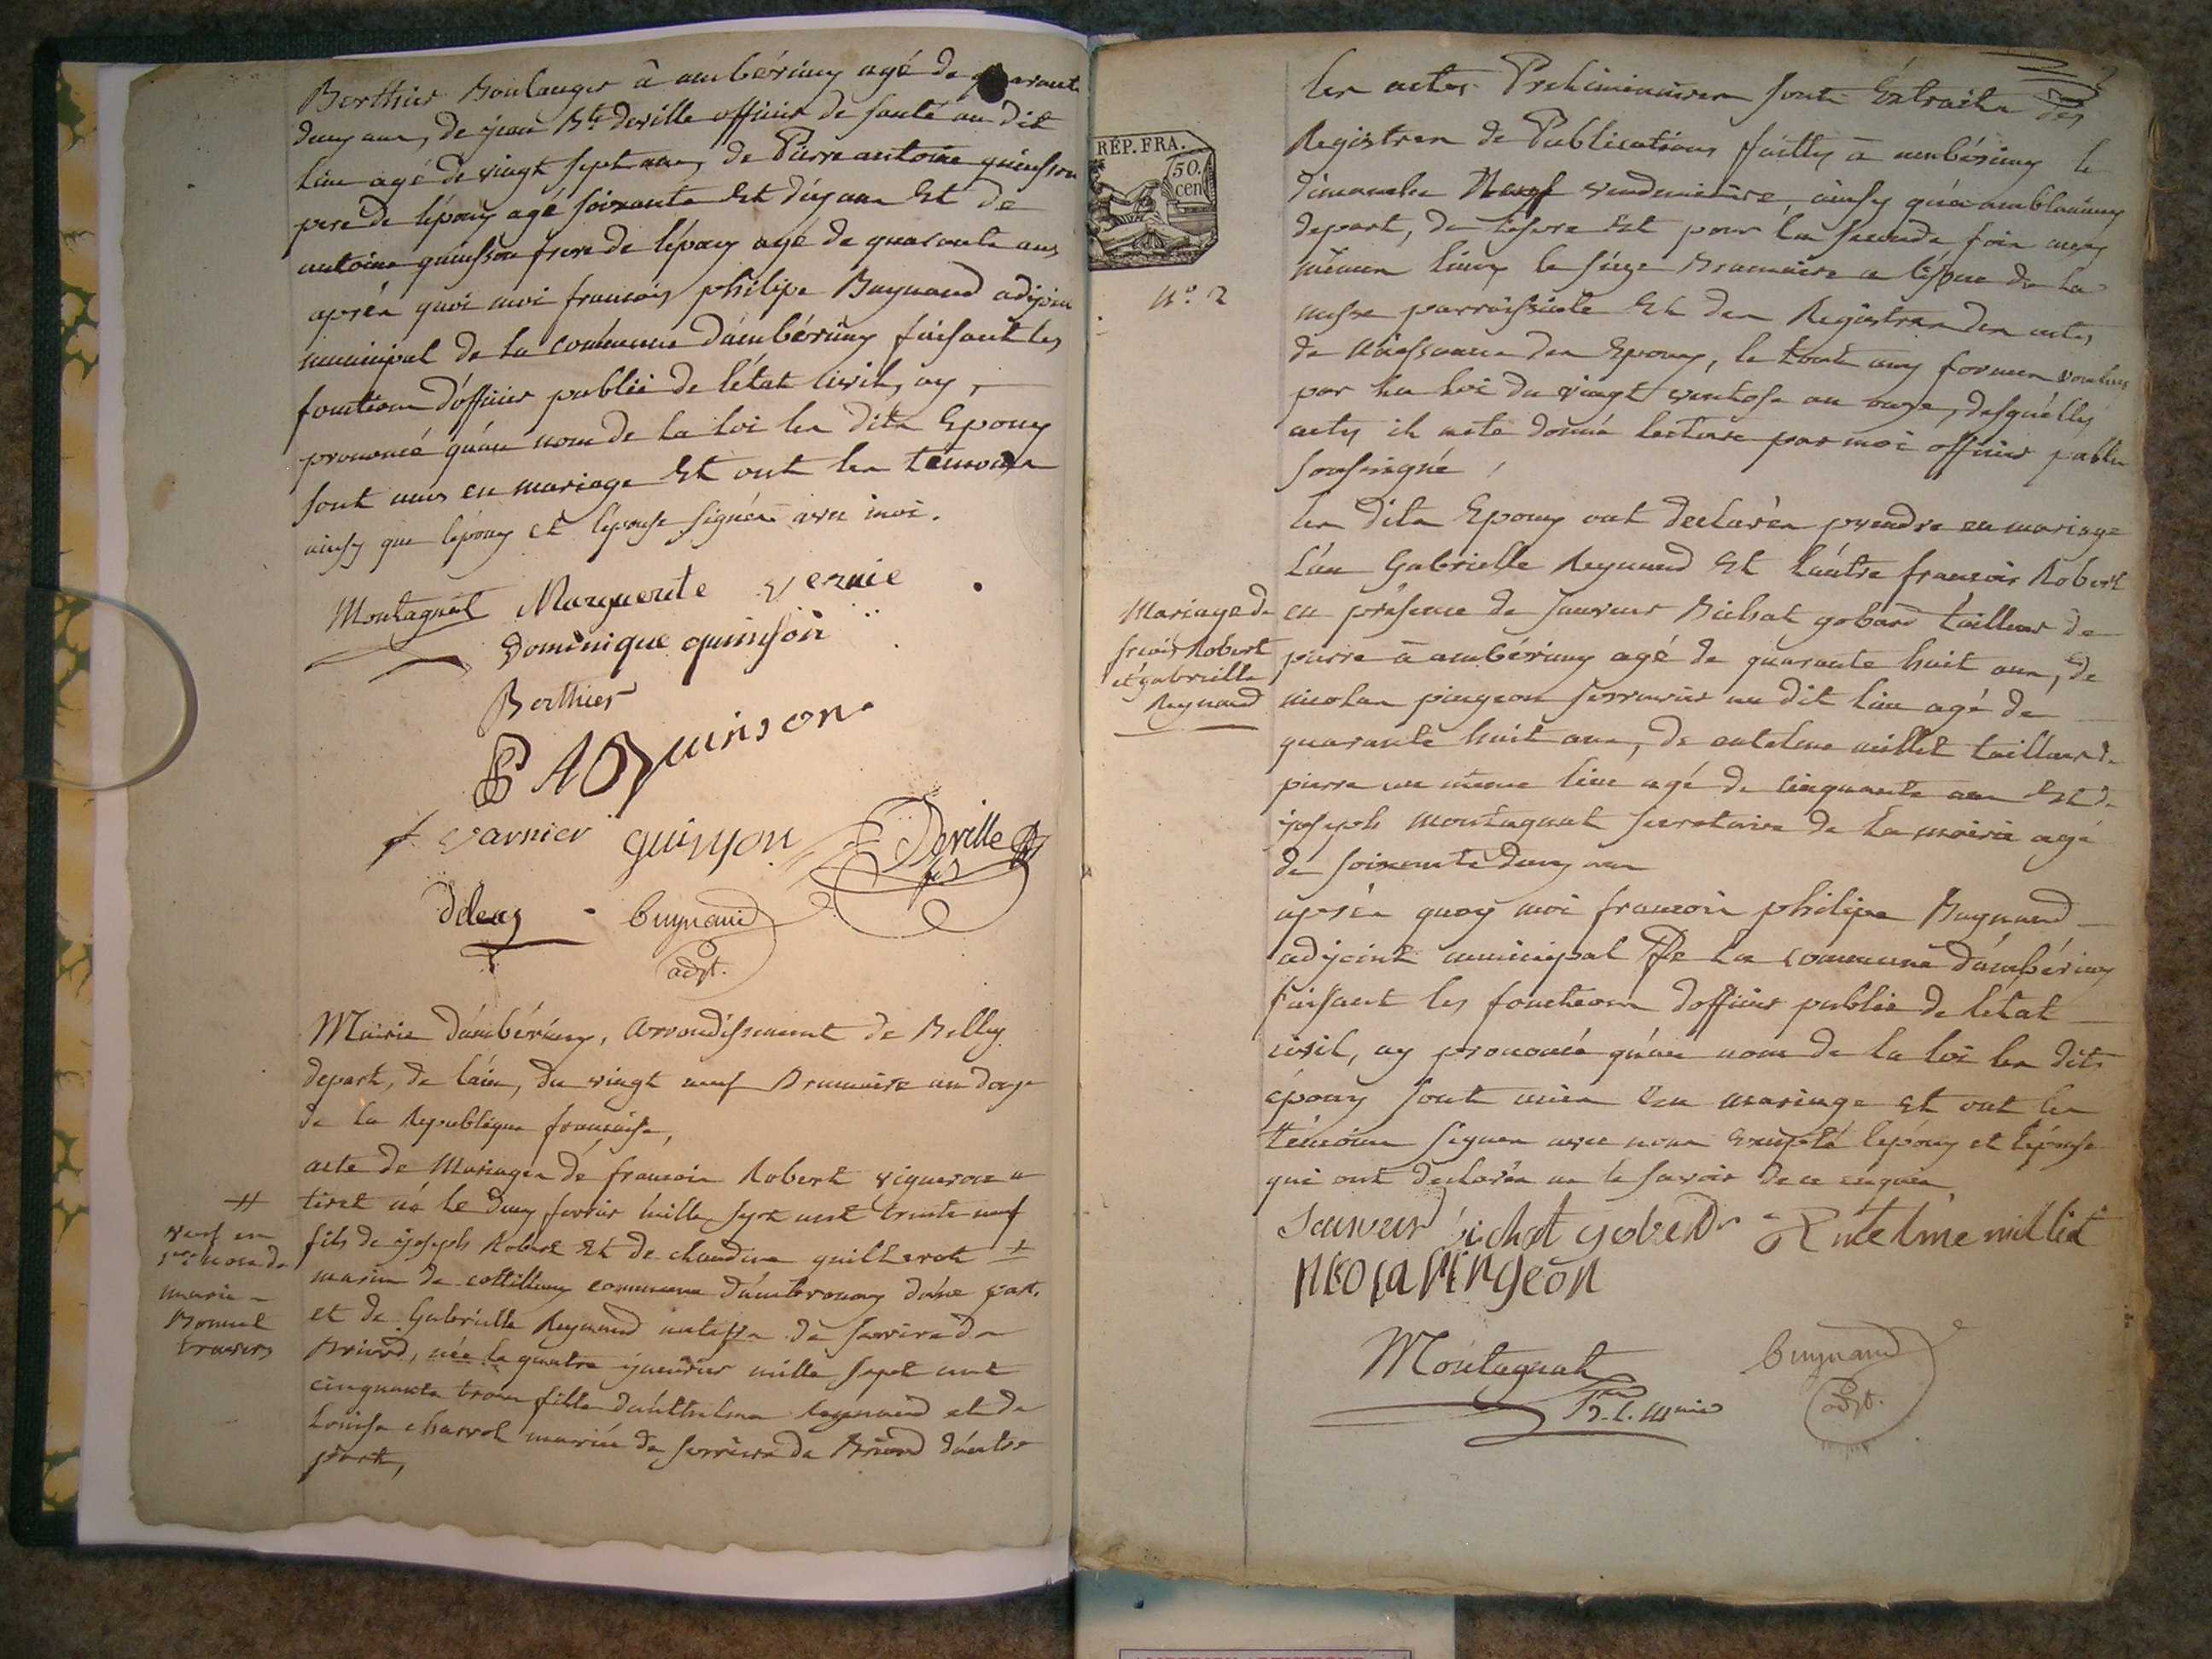 Berthier Boulanger à ambérieuy agé de quarante
deuy ans, de jean Bte deville officier de santé au dit
lieu agé de vingt sept ans, de Pierre antoine quinson
pere de lépouy agé soixante Et diy ans Et de
antoine quinson frere de lépouy agé de quarante ans
aprés quoi moi francois philipe Buynand adjoint
municipal de la commune dámbérieuy faisant les
fonctions dófficier public de létat civil, ay
prononcé quáu nom de la loi les dits Epouy
sont unis en mariage Et ont les temoins
ainsy que lépouy et lépouse signés avec moi.
Montagnat Marguerite vernie
Dominique quinson
Berthier
P A Quinson
f varnier quinson Deville
Buynand
adjt.
Mairie dámbérieuy, arrondissement de Belley
depart, de láin, du vingt neuf Brumaire an douze
de la Republique francaise,
acte de Mariage de francois Robert vigneron a
tiret né le deuy fevrier mille sept cent trente neuf
fils de joseph Robert Et de claudine guillerot #
mariés de cottilliuy commune dámbronay dúne part,
et de Gabrielle Reynaud native de serrieres de
Briord, née le quatre janvier mille sept cent
cinquante trois fille dánthelme Reynaud et de
Louise charrol mariés de serrieres de Briord dáutre
part,
#
veuf en
1ere nose de
marie
Bonnet
travers
RÉP. FRA.
50.
cen
n.o 2
les actes Preliminaires sont Extraits des
Registres de Publications faitty à ambérieuy le
dimanche Neuf vendemiaire, ainsy quá amblanieuy
depart, de lisere Et pour la seconde fois auy
mêmes lieuy le seize Brumaire a lissue de la
messe parroissiale Et des Registres des actes
de Naissance des Epouy, le tout auy formes voulues
par la loi du vingt ventose an onze, desquelly
acty il a eté donné lecture par moi officier public
soussigné,
les dits Epouy ont declarés prendre en mariage
lún Gabrielle Reynaud Et láutre francois Robert
en présence de sauveur Bichat gobard tailleur de
pierre à ambérieuy agé de quarante huit ans, de
nicolas pingeon serrurier au dit lieu agé de
quarante huit ans, de antelme millet tailleur de
pierre au même lieu agé de cinquante ans Et de
joseph montagnat secretaire de la mairie agé
de soixante deuy ans
aprés quoy moi francois philipe Buynand
adjoint municipal de la commune dámbérieuy
faisant les fonctions dofficier public de létat
civil, ay prononcé quáu nom de la loi les dits
époux sont unis En mariage Et ont les
témoins signes avec nous Excepté lépouy et lépouse
qui ont declarés ne le savoir de ce enquis
Mariage de
francois Robert
et gabrielle
Reynaud
Sauveur bichat gobard Antelme milliet
nicola Pingeon
Montagnat
Buynand
adjt.